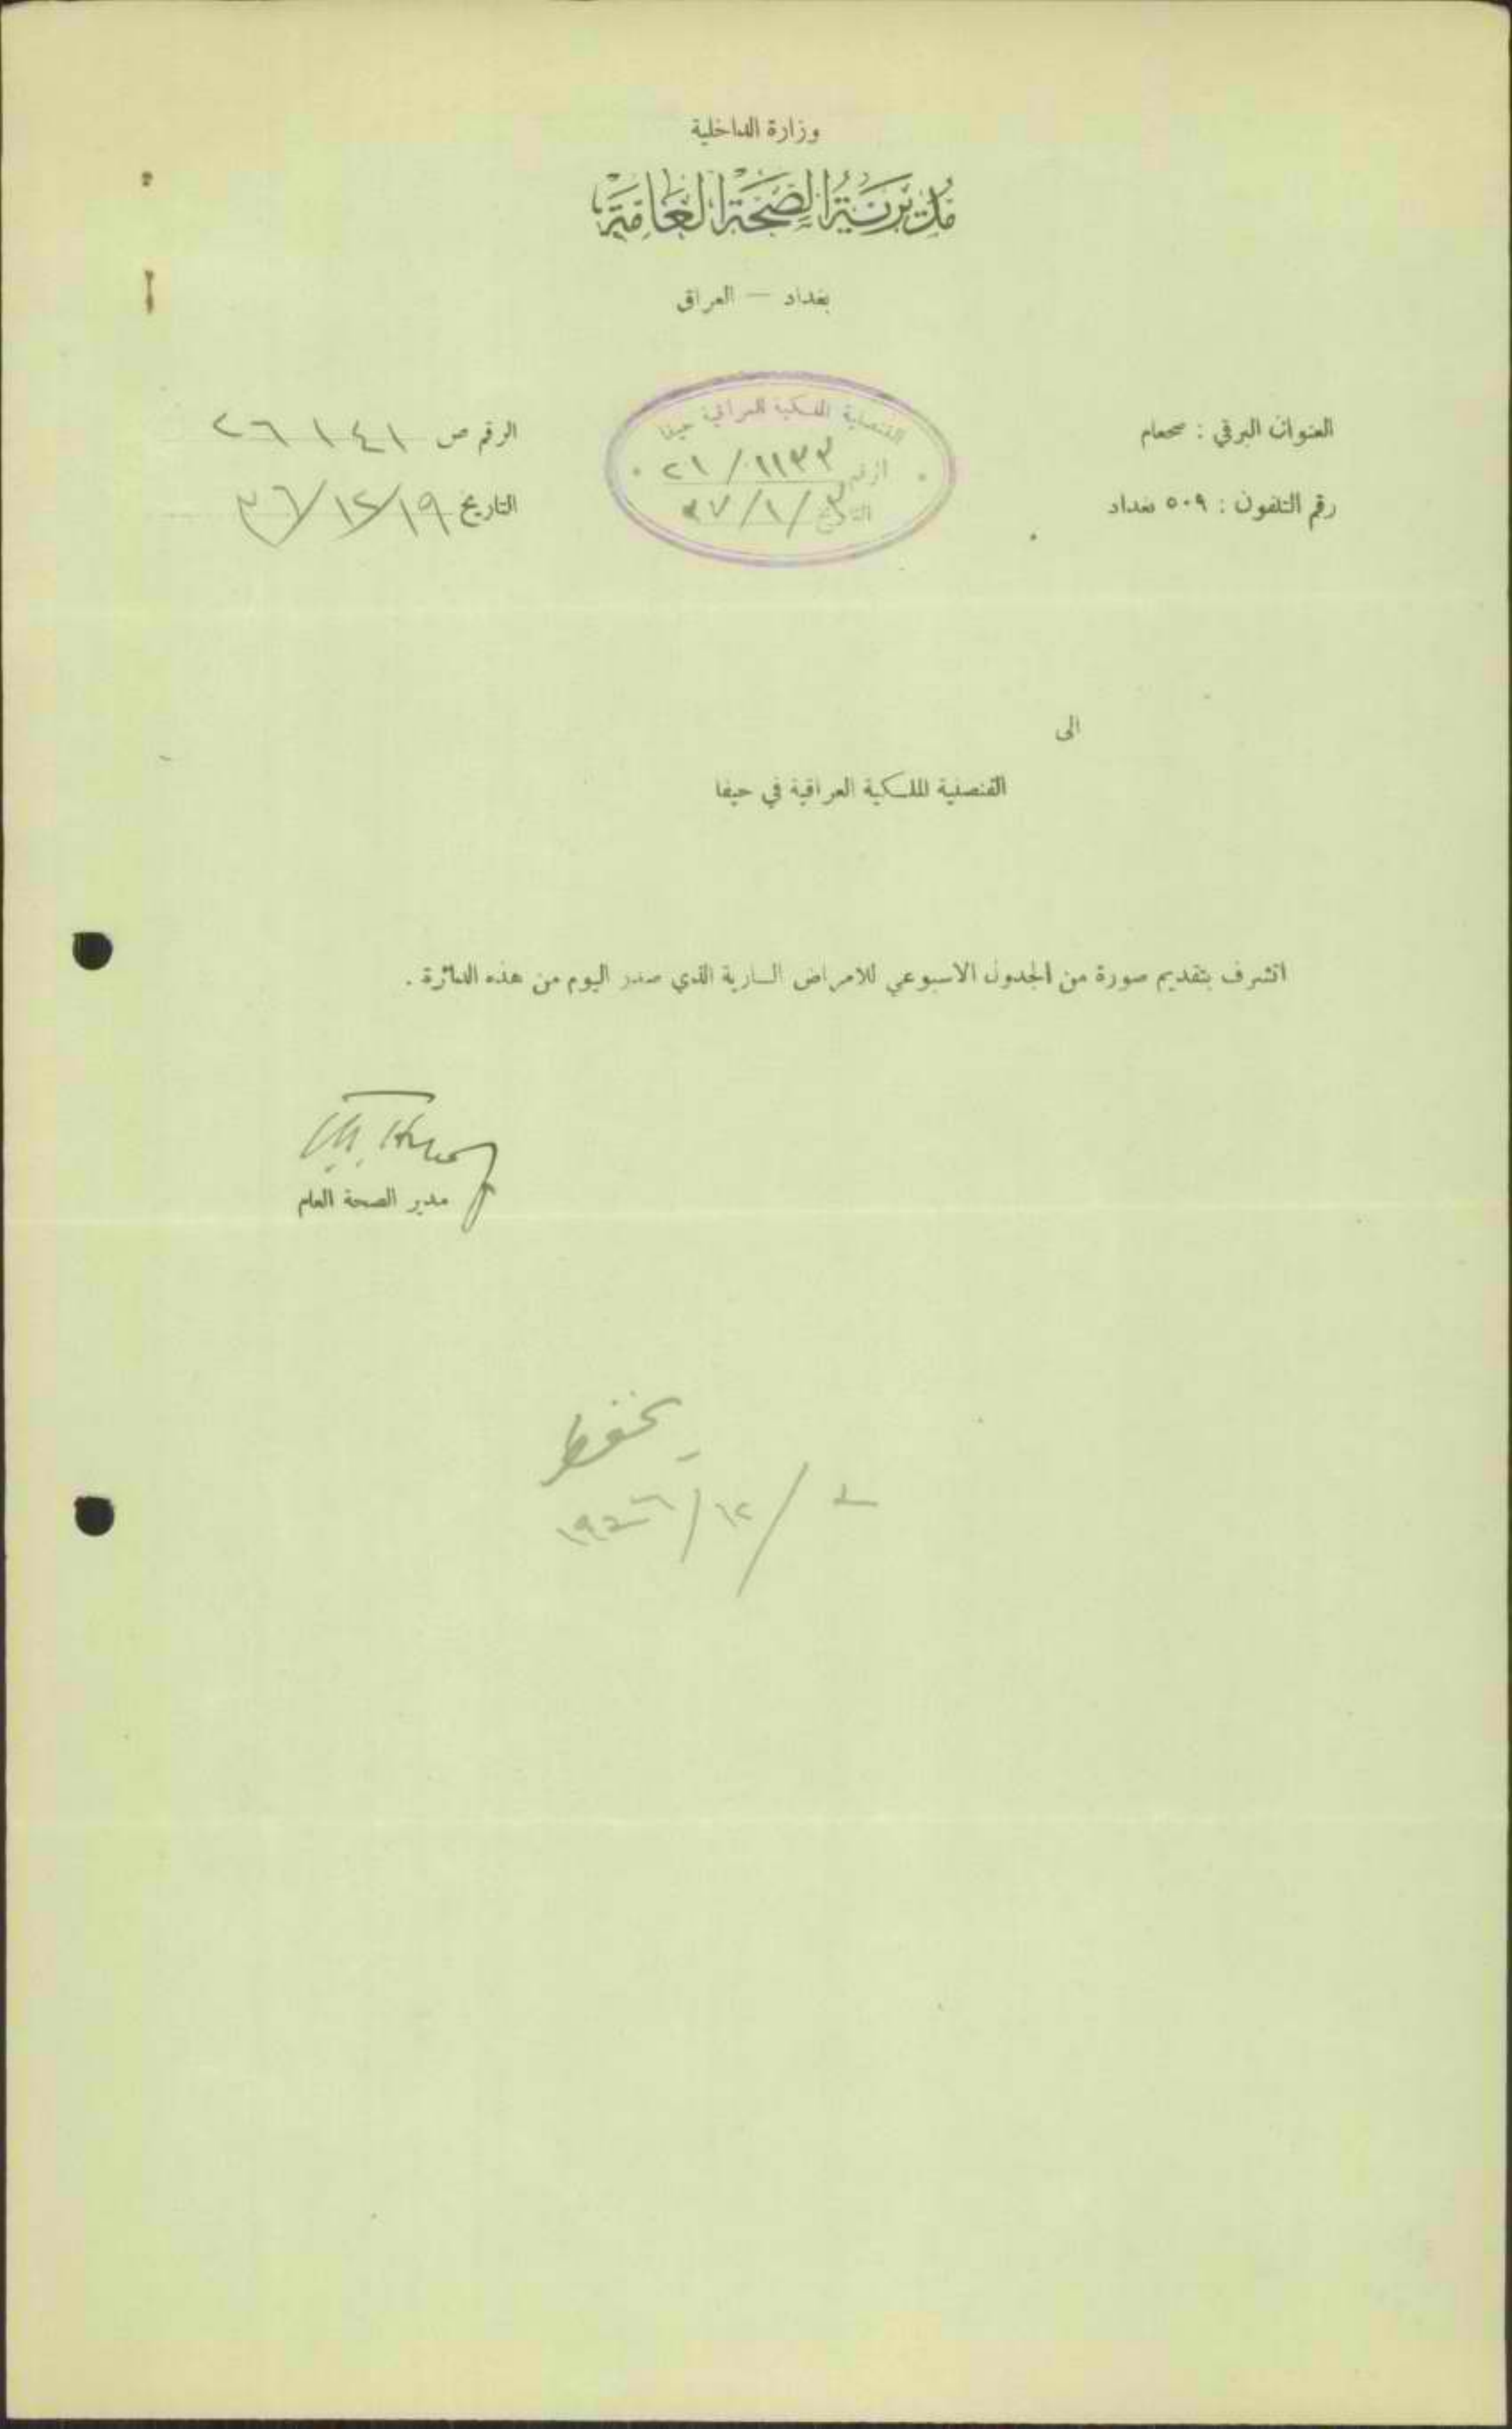 وزارة الداخلية
مديرية الصحة العامة
بغداد — العراق
العنوان البرقي : صحعام
رقم التلفون : ٥٠٩ بغداد
القنصلية الملكية العراقية حيفا
الرقم ٢١/١١٣٣
التاريخ ٣/١/٣٧
الرقم ص ٢٦١٤١
التاريخ ١٩/١٢/٣٦
الى
القنصلية الملكية العراقية في حيفا
اتشرف بتقديم صورة من الجدول الاسبوعي للامراض السارية الذي صدر اليوم من هذه الدائرة .
مدير الصحة العام
يحفظ